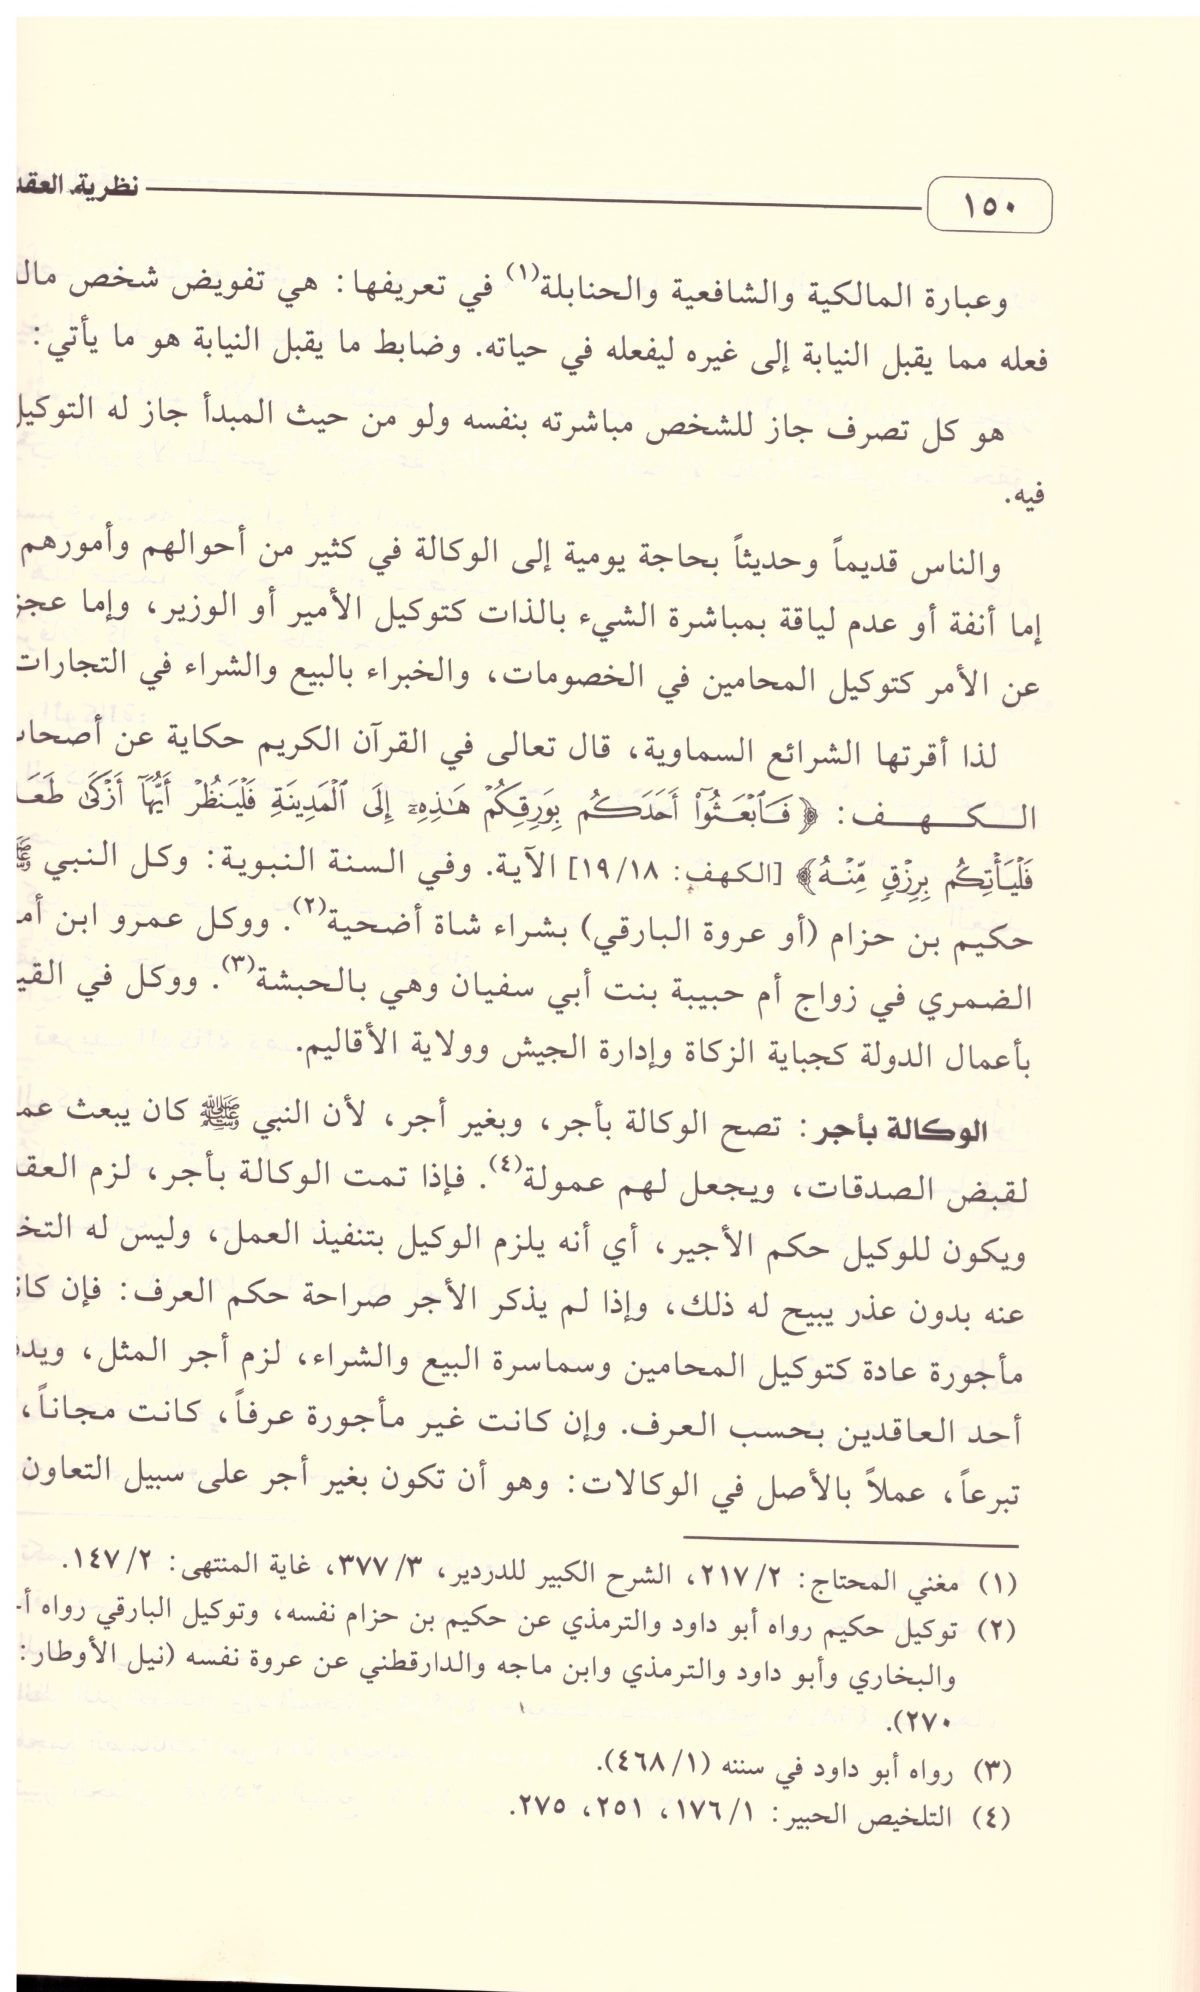 ١٥٠ نظرية العقد
وعبارة المالكية والشافعية والحنابلة(١) في تعريفها: هي تفويض شخص ماله
فعله مما يقبل النيابة إلى غيره ليفعله في حياته. وضابط ما يقبل النيابة هو ما يأتي:
هو كل تصرف جاز للشخص مباشرته بنفسه ولو من حيث المبدأ جاز له التوكيل
فيه.
والناس قديماً وحديثاً بحاجة يومية إلى الوكالة في كثير من أحوالهم وأمورهم
إما أنفة أو عدم لياقة بمباشرة الشيء بالذات كتوكيل الأمير أو الوزير، وإما عجز
عن الأمر كتوكيل المحامين في الخصومات، والخبراء بالبيع والشراء في التجارات
لذا أقرتها الشرائع السماوية، قال تعالى في القرآن الكريم حكاية عن
الكهف: ﴿فَٱبۡعَثُوٓاْ أَحَدَكُم بِوَرِقِكُمۡ هَٰذِهِۦٓ إِلَى ٱلۡمَدِينَةِ فَلۡيَنظُرۡ أَيُّهَآ أَزۡكَىٰ
فَلۡيَأۡتِكُم بِرِزۡقٖ مِّنۡهُ﴾ [الكهف: ١٩/١٨] الآية. وفي السنة النبوية: وكل النبي ﷺ
حكيم بن حزام (أو عروة البارقي) بشراء شاة أضحية(٢). ووكل عمرو ابن
الضمري في زواج أم حبيبة بنت أبي سفيان وهي بالحبشة(٣). ووكل في
بأعمال الدولة كجباية الزكاة وإدارة الجيش وولاية الأقاليم.
الوكالة بأجر: تصح الوكالة بأجر، وبغير أجر، لأن النبي ﷺ كان يبعث
لقبض الصدقات، ويجعل لهم عمولة(٤). فإذا تمت الوكالة بأجر، لزم العقد
ويكون للوكيل حكم الأجير، أي أنه يلزم الوكيل بتنفيذ العمل، وليس له
عنه بدون عذر يبيح له ذلك، وإذا لم يذكر الأجر صراحة حكم العرف: فإن
مأجورة عادة كتوكيل المحامين وسماسرة البيع والشراء، لزم أجر المثل،
أحد العاقدين بحسب العرف. وإن كانت غير مأجورة عرفاً، كانت مجاناً،
تبرعاً، عملاً بالأصل في الوكالات: وهو أن تكون بغير أجر على سبيل التعاون
(١) مغني المحتاج: ٢١٧/٢، الشرح الكبير للدردير، ٣٧٧/٣، غاية المنتهى: ١٤٧/٢.
(٢) توكيل حكيم رواه أبو داود والترمذي عن حكيم بن حزام نفسه، وتوكيل البارقي رواه
والبخاري وأبو داود والترمذي وابن ماجه والدارقطني عن عروة نفسه (نيل الأوطار:
٢٧٠).
(٣) رواه أبو داود في سننه (٤٦٨/١).
(٤) التلخيص الحبير: ١٧٦/١، ٢٥١، ٢٧٥.